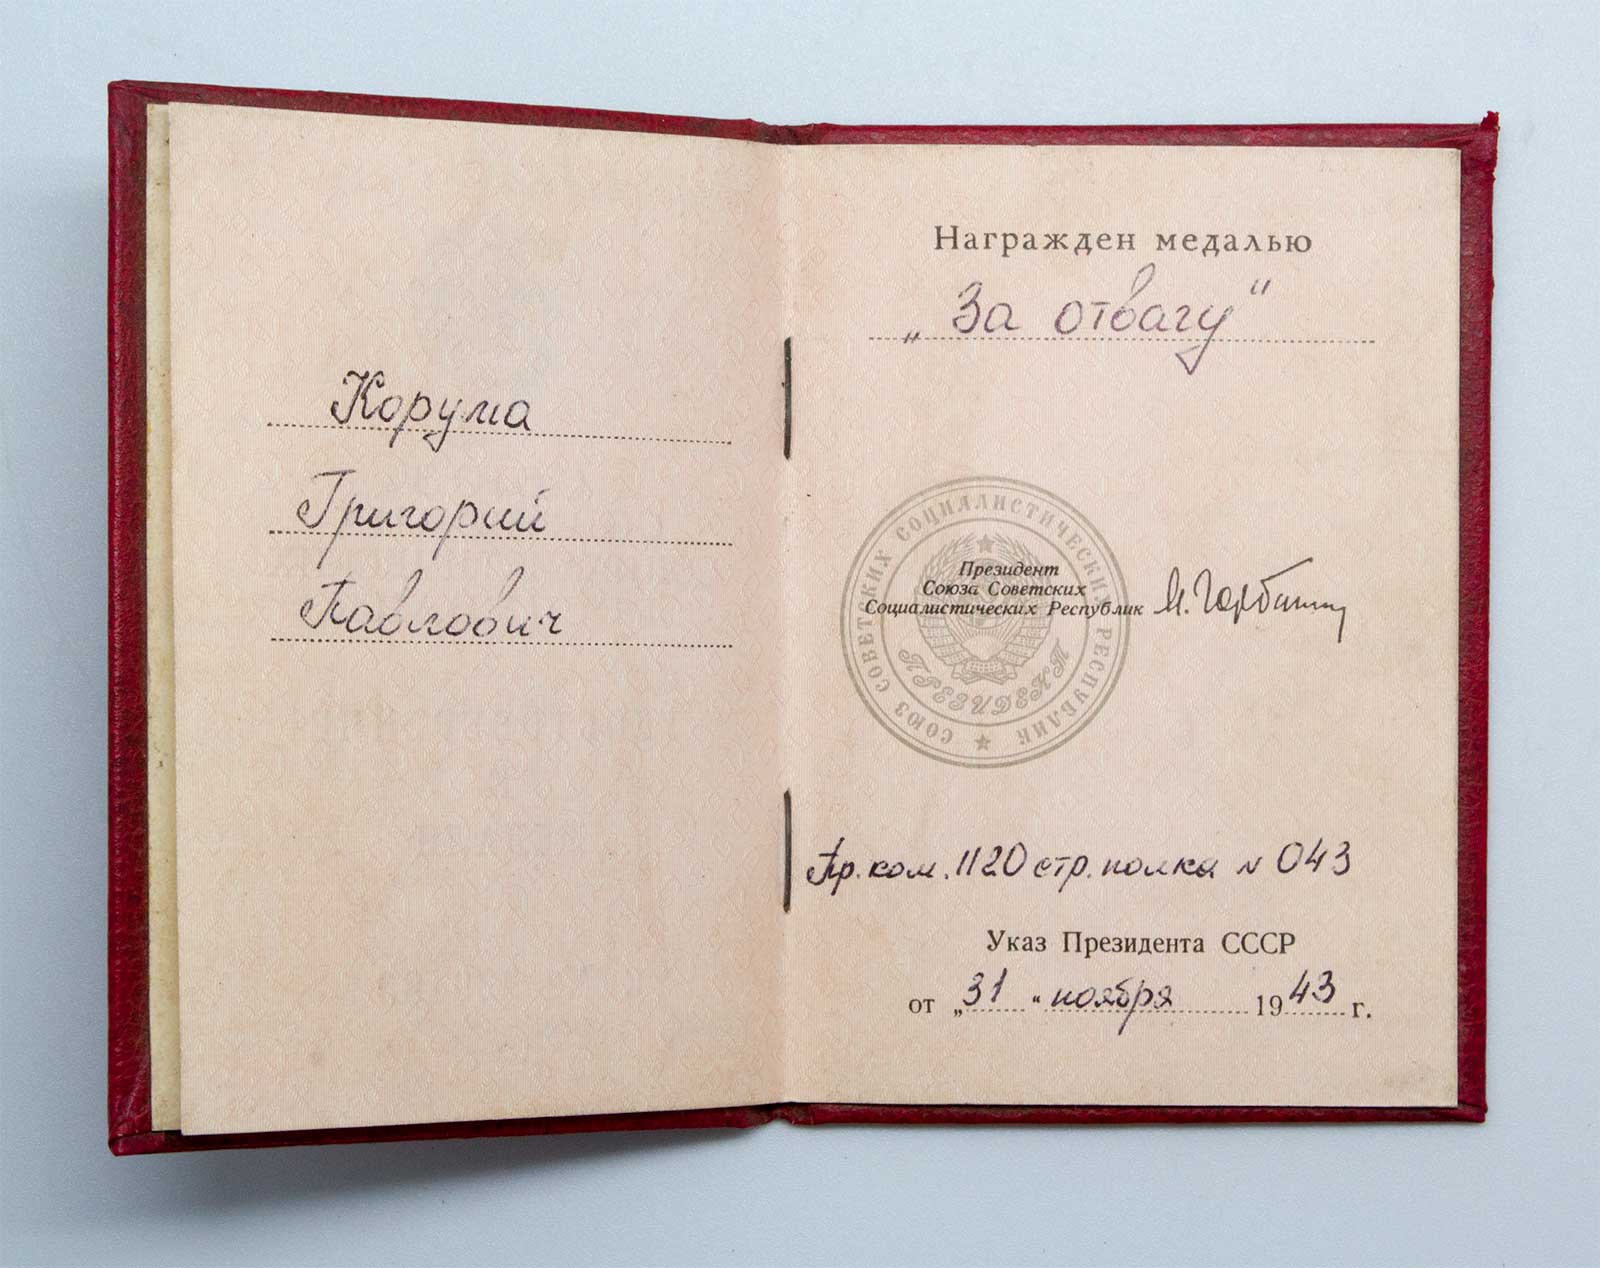 Корума
Григорий
Павлович
Награжден медалью
„За отвагу“
СОЮЗ СОВЕТСКИХ СОЦИАЛИСТИЧЕСКИХ РЕСПУБЛИК
Президент
Союза Советских
Социалистических Республик М. Горбачев
ПРЕЗИДЕНТ
Пр. ком. 1120 стр. полка N 043
Указ Президента СССР
от „31“ ноября 1943 г.